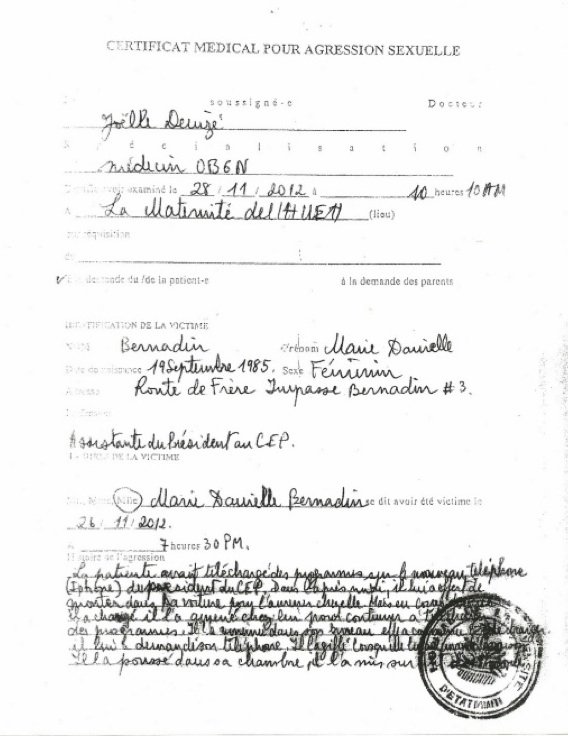 CERTIFICAT MEDICAL POUR AGRESSION SEXUELLE
soussigné-e Docteur
Joëlle Deuzé
médecin OBGN
avoir examiné le 28/11/2012 à 10 heures 10 AM
A La Maternité del'HUEH (lieu)
sur réquisition
de
✓ à la demande du /de la patient-e à la demande des parents
IDENTIFICATION DE LA VICTIME
Bernadin Prénom Marie Danielle
Date de naissance 19 Septembre 1985. Sexe Féminin
Adresse Route de Frère Impasse Bernadin # 3.
Profession
Assistante du Président au CEP.
DE LA VICTIME
Mlle Marie Danielle Bernadin se dit avoir été victime le
26/11/2012.
à 7 heures 30 PM.
Histoire de l'agression
La patiente avait téléchargé des programmes sur le nouveau téléphone
(Iphone) du président du CEP. Dans l'après midi, il lui a offert de
monter dans sa voiture pour l'amener chez elle. Mais en
a changé il l'a amené chez lui pour continuer à
des programmes. Il l'a emmené dans son bureau et a commencé
il lui a demandé son téléphone. Il l'a giflé lorsqu'elle
Il l'a poussé dans sa chambre, il l'a mis sur
D'ETAT D'HAITI